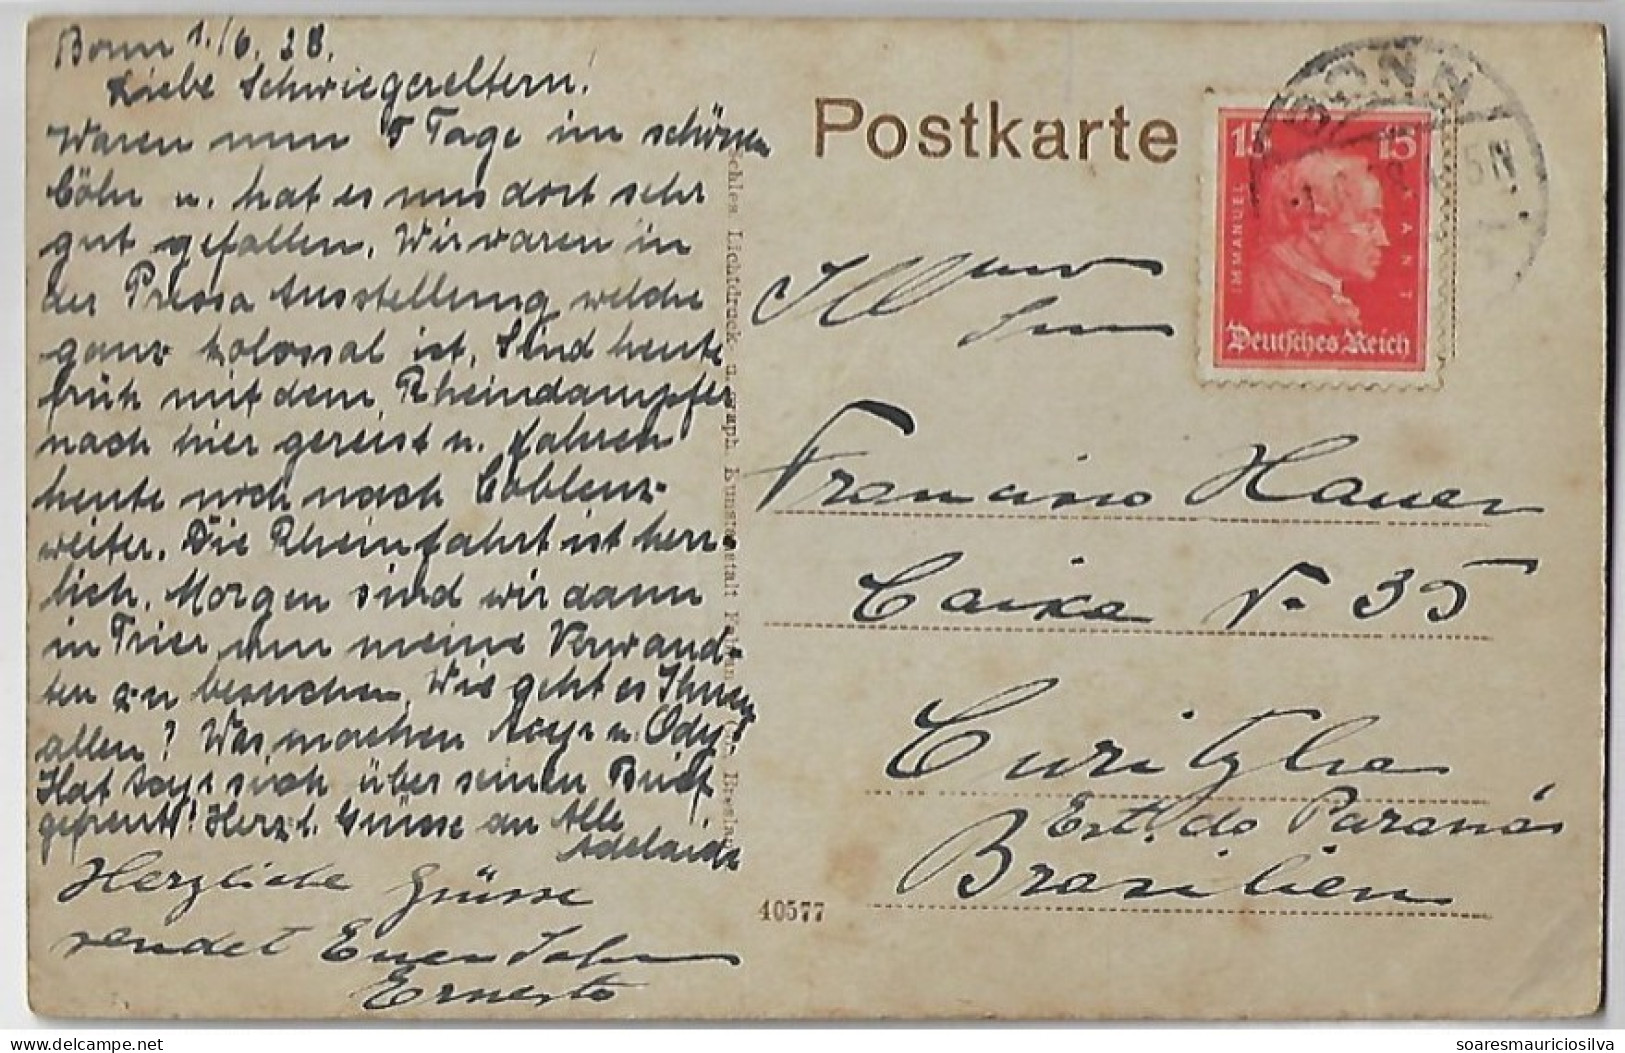 Bonn 1./6. 28.
Liebe Schwiegereltern!
Waren nun 5 Tage im schönen
Cöln u. hat es uns dort sehr
gut gefallen. Wir waren in
der Pressa Ausstellung welche
ganz kolossal ist. Sind heute
früh mit dem Rheindampfer
nach hier gereist u. fahren
heute noch nach Coblenz
weiter. Die Rheinfahrt ist herr-
lich. Morgen sind wir dann
in Trier um meine Verwand-
ten zu besuchen. Wie geht es Ihnen
allen? Was machen Acyr u. Ody?
Hat Acyr sich über seinen Brief
gefreut? Herzl. Grüsse an Alle
Adelaide
Herzliche Grüsse
sendet Euer Sohn
Ernesto
Schles. Lichtdruck- u. graph. Kunstanstalt Breslau
40577
Postkarte
15 15
IMMANUEL KANT
Deutsches Reich
BONN
Francisco Hauer
Caixa No 35
Curityba
Est. do Paraná
Brasilien
soaresmauriciosilva